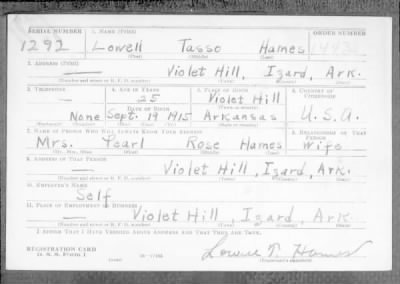 SERIAL NUMBER 1. NAME (Print) ORDER NUMBER
1292 Lowell Tasso Hames
(First) (Middle) (Last)
2. ADDRESS (Print)
— Violet Hill, Izard, Ark.
(Number and street or R. F. D. number) (Town) (County) (State)
3. TELEPHONE 4. AGE IN YEARS 5. PLACE OF BIRTH 6. COUNTRY OF CITIZENSHIP
— 25 Violet Hill
DATE OF BIRTH (Town or county)
None Sept. 19 1915 Arkansas U.S.A.
7. NAME OF PERSON WHO WILL ALWAYS KNOW YOUR ADDRESS 8. RELATIONSHIP OF THAT PERSON
Mrs. Pearl Rose Hames Wife
(Mr., Mrs., Miss) (First) (Middle) (Last)
9. ADDRESS OF THAT PERSON
— Violet Hill, Izard, Ark.
(Number and street or R. F. D. number) (Town) (County) (State)
10. EMPLOYER'S NAME
Self
11. PLACE OF EMPLOYMENT OR BUSINESS
— Violet Hill, Izard, Ark.
(Number and street or R. F. D. number) (Town) (County) (State)
I AFFIRM THAT I HAVE VERIFIED ABOVE ANSWERS AND THAT THEY ARE TRUE.
REGISTRATION CARD
D. S. S. Form 1